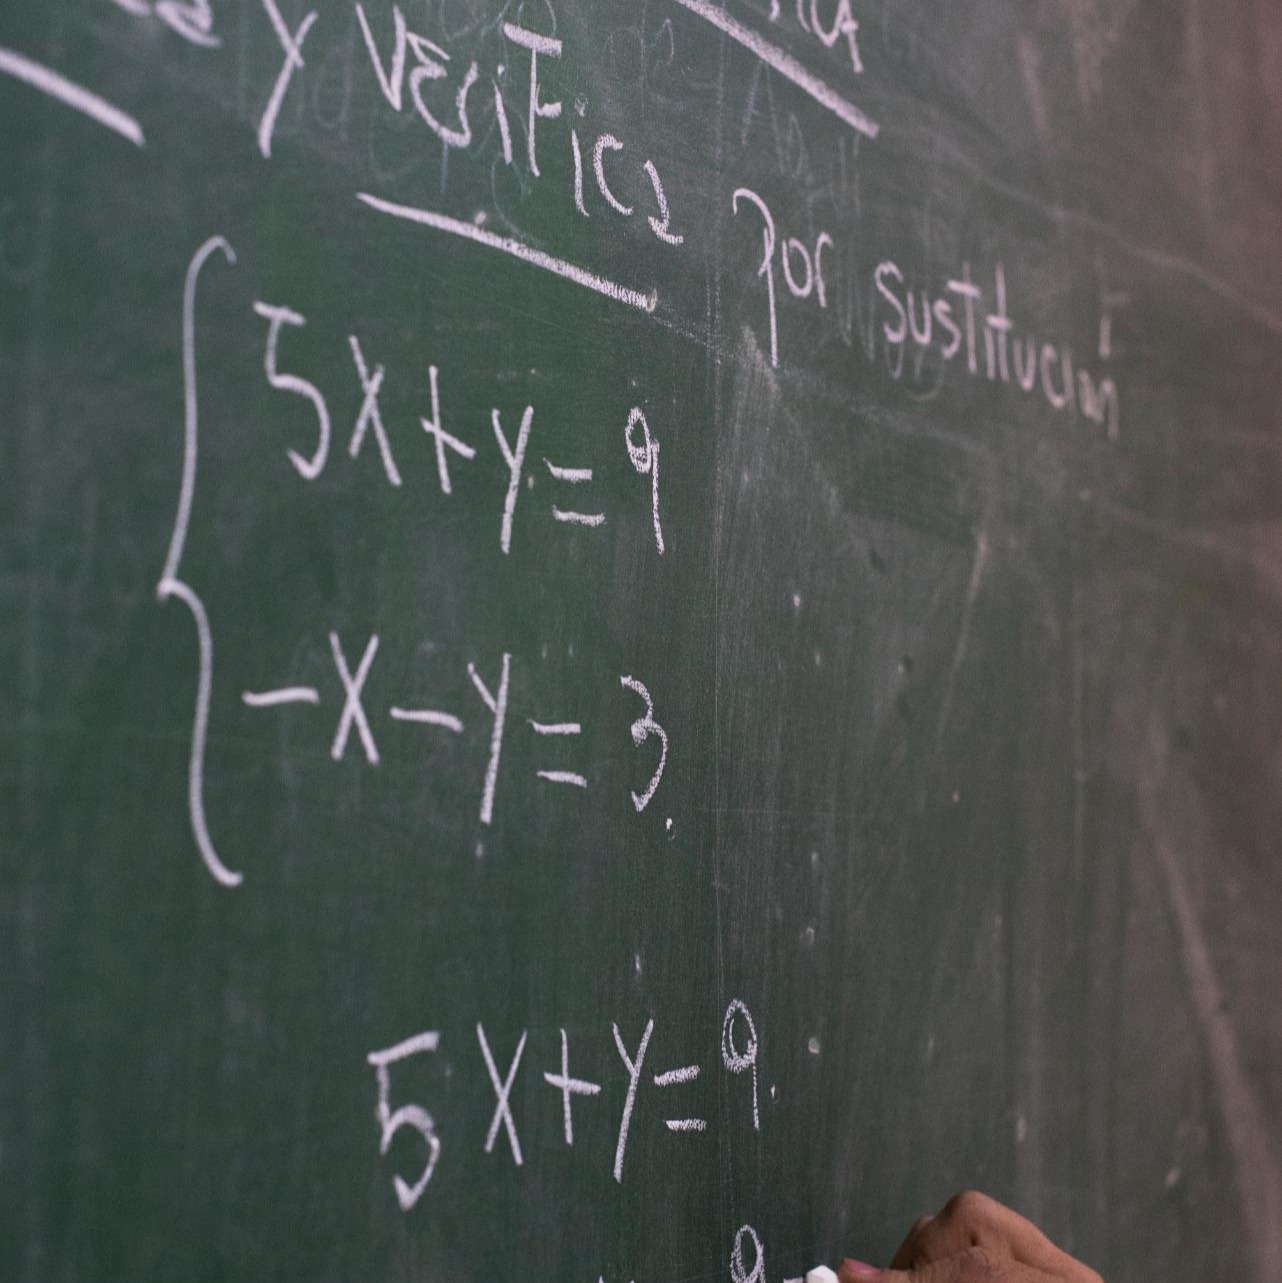 y VERIFICA por sustitución
5x+y=9
-x-y=3
5x+y=9
9-